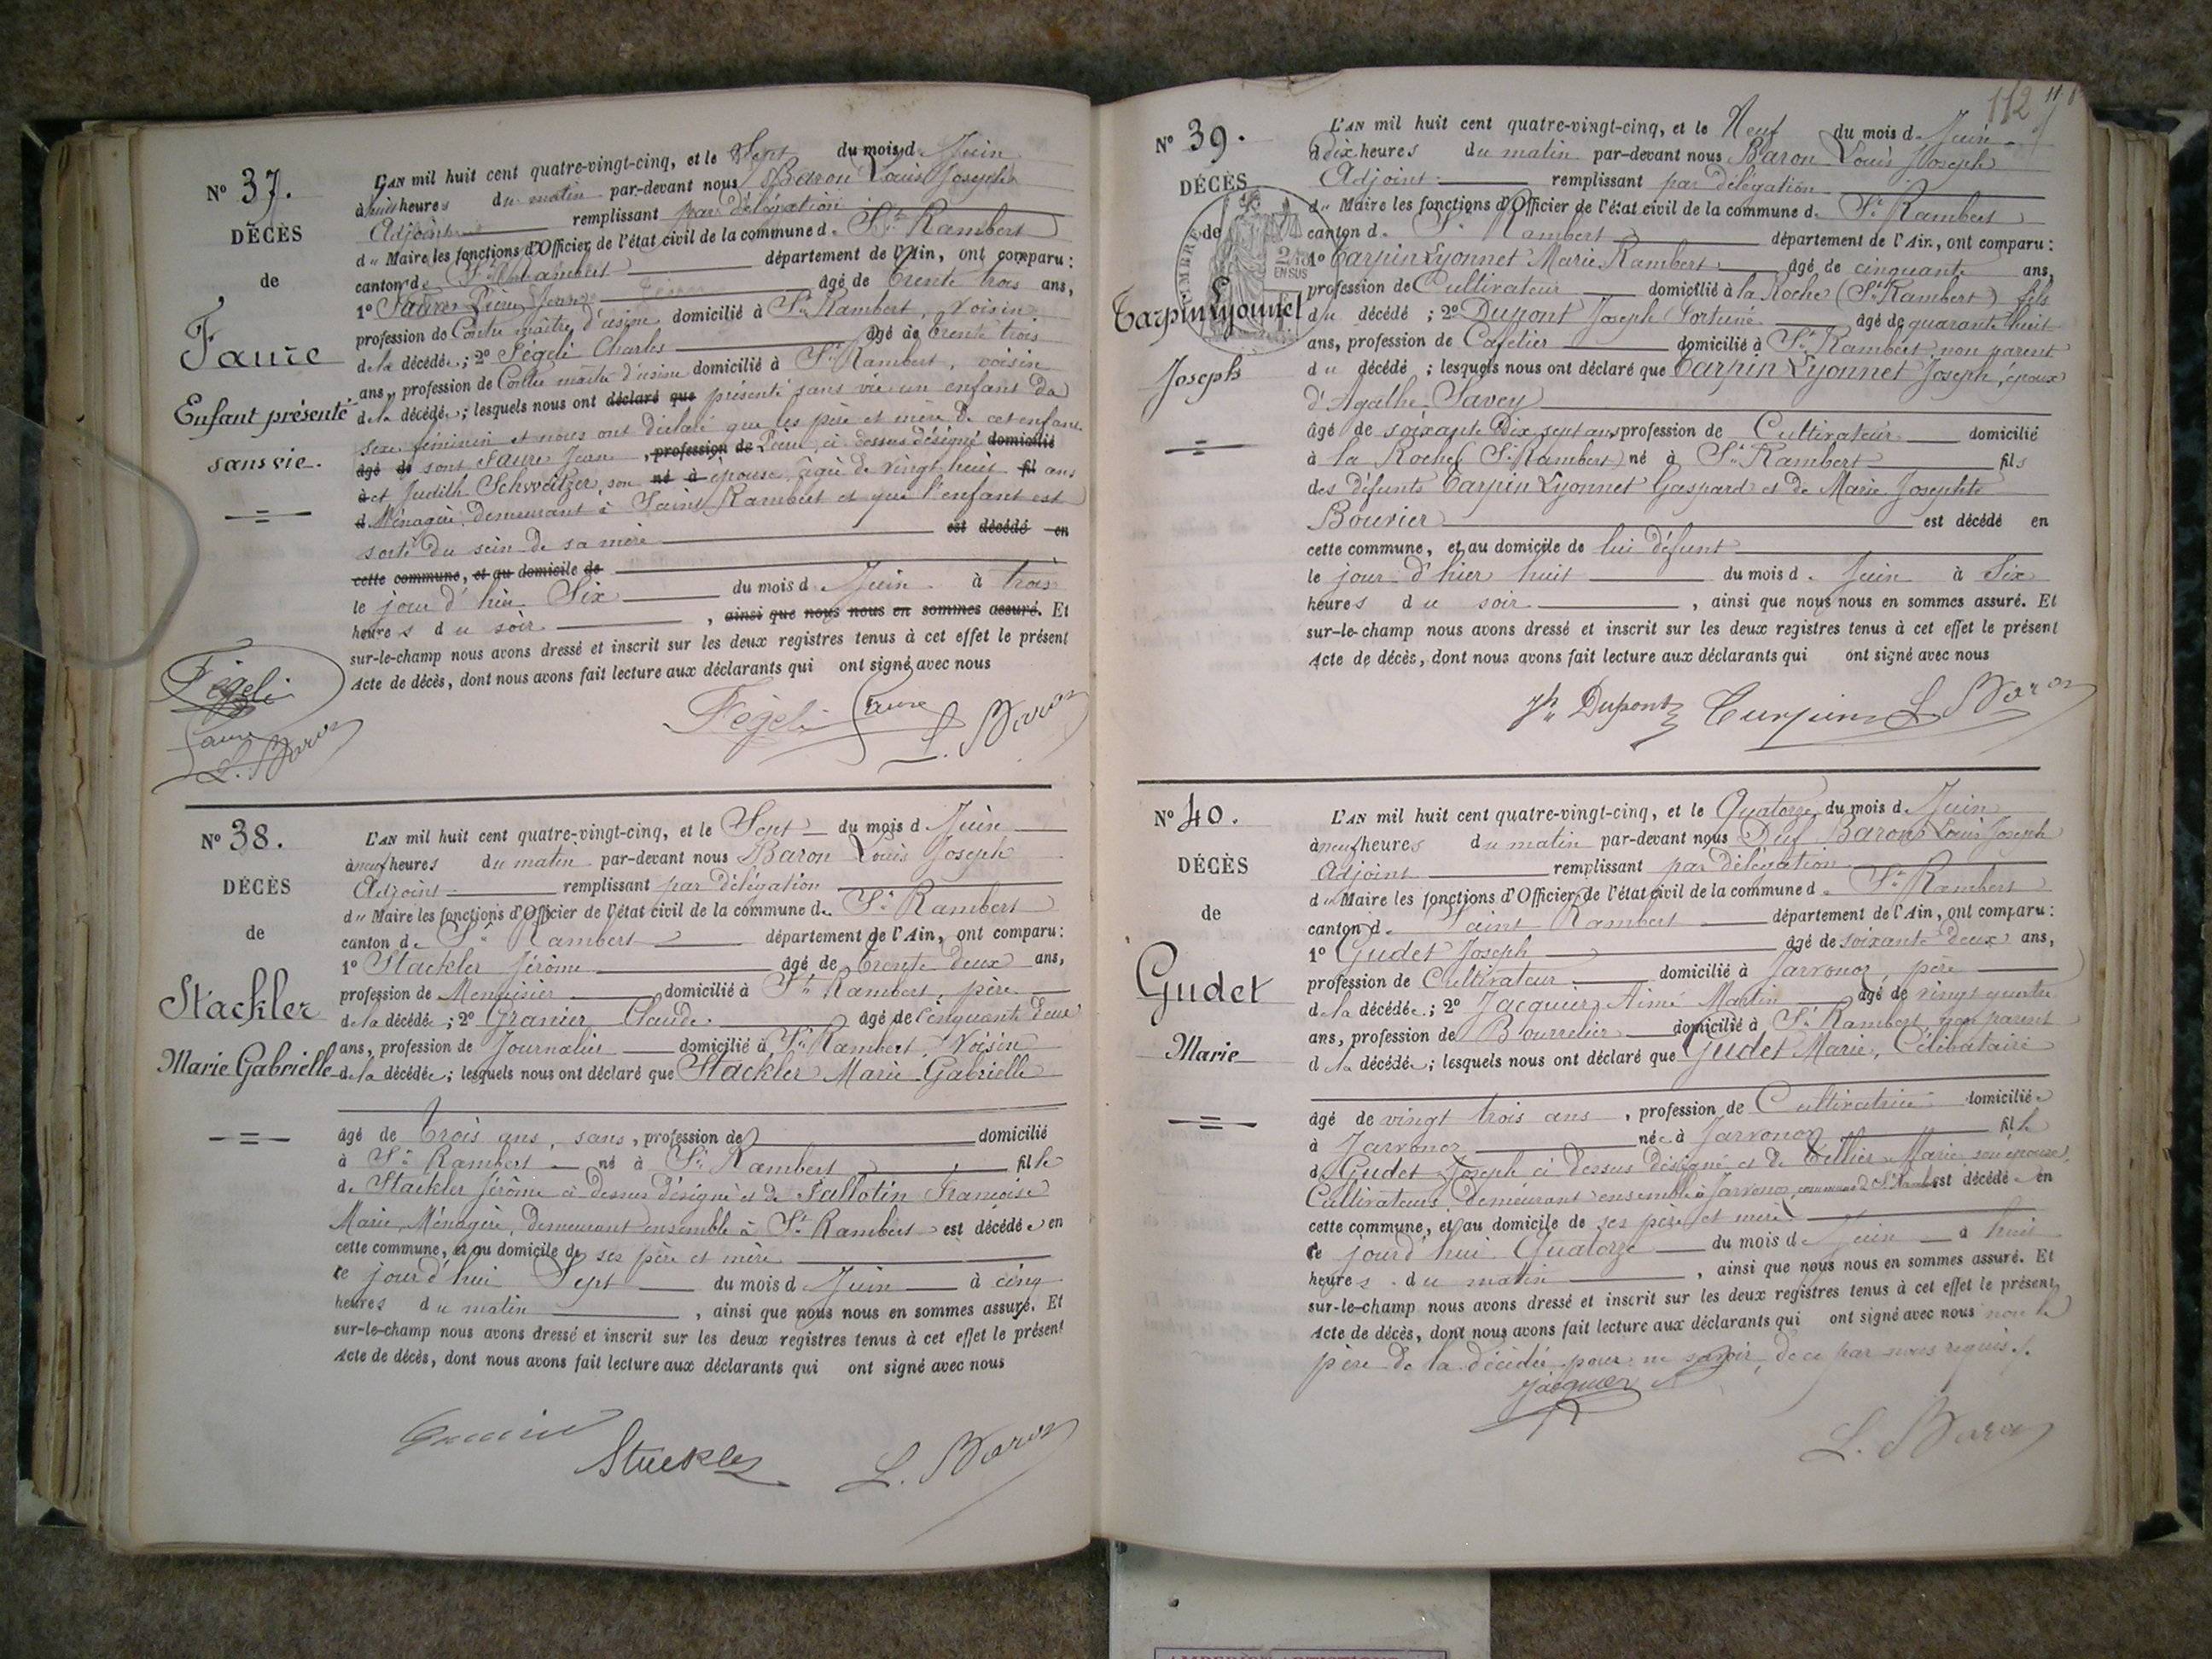 N° 37.
DÉCÈS
de
Faure
Enfant présenté
sans vie.
L'AN mil huit cent quatre-vingt-cinq, et le Sept du mois d. Juin
à huit heures du matin par-devant nous Baron Louis Joseph
Adjoint remplissant par délégation
d" Maire les fonctions d'Officier de l'état civil de la commune d. St Rambert
canton d. St Rambert département de l'Ain, ont comparu:
1° Faure Jean âgé de trente trois ans,
profession de Contre maître d'usine domicilié à St Rambert, voisin
de la décédée; 2° Fégeli Charles âgé de trente trois
ans, profession de Contre maître d'usine domicilié à St Rambert, voisin
de la décédée; lesquels nous ont déclaré que présenté sans vie un enfant du
sexe féminin et nous ont déclaré que les père et mère de cet enfant
âgé de sont Faure Jean, profession de ci dessus désigné domicilié
à et Judith Schweitzer, son né à épouse, âgée de vingt huit fil ans
d Ménagère, demeurant à Saint Rambert et que l'enfant est
sorti du sein de sa mère est décédé en
cette commune, et au domicile de
le jour d'hier Six du mois d. Juin à trois
heures du soir, ainsi que nous nous en sommes assuré. Et
sur-le-champ nous avons dressé et inscrit sur les deux registres tenus à cet effet le présent
Acte de décès, dont nous avons fait lecture aux déclarants qui ont signé avec nous
Fégeli
Faure
L. Baron
Fégeli Faure L. Baron
N° 38.
DÉCÈS
de
Stackler
Marie Gabrielle
L'AN mil huit cent quatre-vingt-cinq, et le Sept du mois d Juin
à neuf heures du matin par-devant nous Baron Louis Joseph
Adjoint remplissant par délégation
d" Maire les fonctions d'Officier de l'état civil de la commune d. St Rambert
canton d. St Rambert département de l'Ain, ont comparu:
1° Stackler Jérôme âgé de trente deux ans,
profession de Menuisier domicilié à St Rambert, père
de la décédée; 2° Granier Claude âgé de Cinquante deux
ans, profession de Journalier domicilié à St Rambert, Voisin
de la décédée; lesquels nous ont déclaré que Stackler Marie Gabrielle
âgé de trois ans, sans, profession de domicilié
à St Rambert né à St Rambert fille
de Stackler Jérôme ci dessus désigné et de Pallotin Françoise
Marie, Ménagère, demeurant ensemble à St Rambert est décédée en
cette commune, et au domicile de ses père et mère
ce jourd'hui Sept du mois d Juin à cinq
heures du matin, ainsi que nous nous en sommes assuré. Et
sur-le-champ nous avons dressé et inscrit sur les deux registres tenus à cet effet le présent
Acte de décès, dont nous avons fait lecture aux déclarants qui ont signé avec nous
Stackler L. Baron
112
N° 39.
DÉCÈS
de
Carpin Lyonnet
Joseph
EN SUS
L'AN mil huit cent quatre-vingt-cinq, et le Neuf du mois d. Juin
à dix heures du matin par-devant nous Baron Louis Joseph
Adjoint remplissant par délégation
d" Maire les fonctions d'Officier de l'état civil de la commune d. St Rambert
canton d. St Rambert département de l'Ain, ont comparu:
1° Carpin Lyonnet Marie Rambert âgé de cinquante ans,
profession de Cultivateur domicilié à la Roche (St Rambert) fils
du décédé; 2° Dupont Joseph Fortuné âgé de quarante huit
ans, profession de Cafetier domicilié à St Rambert non parent
du décédé; lesquels nous ont déclaré que Carpin Lyonnet Joseph, époux
d'Agathe Savey
âgé de soixante Dix sept ans profession de Cultivateur domicilié
à la Roche (St Rambert) né à St Rambert fils
des défunts Carpin Lyonnet Gaspard et de Marie Josephte
Bouvier est décédé en
cette commune, et au domicile de lui défunt
le jour d'hier huit du mois d. Juin à Six
heures du soir, ainsi que nous nous en sommes assuré. Et
sur-le-champ nous avons dressé et inscrit sur les deux registres tenus à cet effet le présent
Acte de décès, dont nous avons fait lecture aux déclarants qui ont signé avec nous
Jh Dupont Carpin L. Baron
N° 40.
DÉCÈS
de
Gudet
Marie
L'AN mil huit cent quatre-vingt-cinq, et le Quatorze du mois d. Juin
à neuf heures du matin par-devant nous Baron Louis Joseph
Adjoint remplissant par délégation
d" Maire les fonctions d'Officier de l'état civil de la commune d. St Rambert
canton d. Saint Rambert département de l'Ain, ont comparu:
1° Gudet Joseph âgé de soixante deux ans,
profession de Cultivateur domicilié à Javronoz, père
de la décédée; 2° Jacquier Aimé Martin âgé de vingt quatre
ans, profession de Bourrelier domicilié à St Rambert non parent
d la décédée; lesquels nous ont déclaré que Gudet Marie, Célibataire
âgé de vingt trois ans, profession de Cultivatrice domiciliée
à Javronoz née à Javronoz fille
d Gudet Joseph ci dessus désigné et de Tellier Marie son épouse
Cultivateurs demeurant ensemble à Javronoz, commune de St Rambert est décédée en
cette commune, et au domicile de ses père et mère
ce jourd'hui Quatorze du mois d. Juin à huit
heures du matin, ainsi que nous nous en sommes assuré. Et
sur-le-champ nous avons dressé et inscrit sur les deux registres tenus à cet effet le présent
Acte de décès, dont nous avons fait lecture aux déclarants qui ont signé avec nous non le
père de la décédée pour ne savoir, de ce par nous requis.
Jacquier
L. Baron